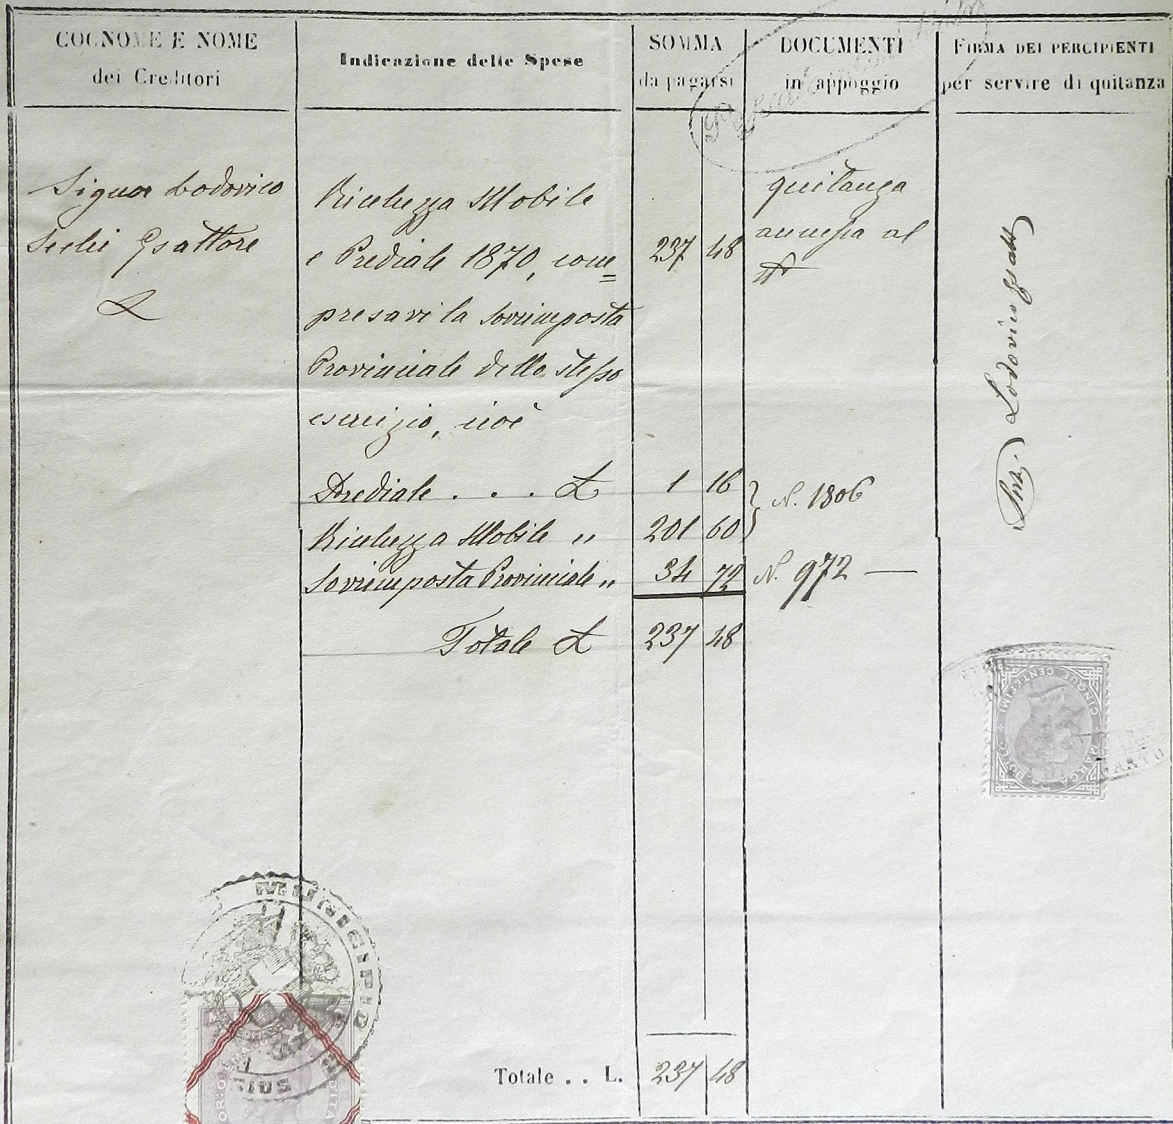 COGNOME E NOME
dei Creditori
Indicazione delle Spese
SOMMA
da pagarsi
DOCUMENTI
in appoggio
FIRMA DEI PERCIPIENTI
per servire di quitanza
Signor Lodovico
Esattore
Richezza Mobile
e Prediale 1870, com=
presavi la sovrimposta
Provinciale dello stesso
esercizio, cioè
237 48
quitanza
annessa al
Prediale . . . £ 1 16
N. 1806
Richezza Mobile " 201 60
Sovrimposta Provinciale " 34 72
N. 972 —
Totale £ 237 48
Lodovico
MARCA DA BOLLO
CINQUE CENTESIMI
MUNICIPIO
Totale . . L. 237 48